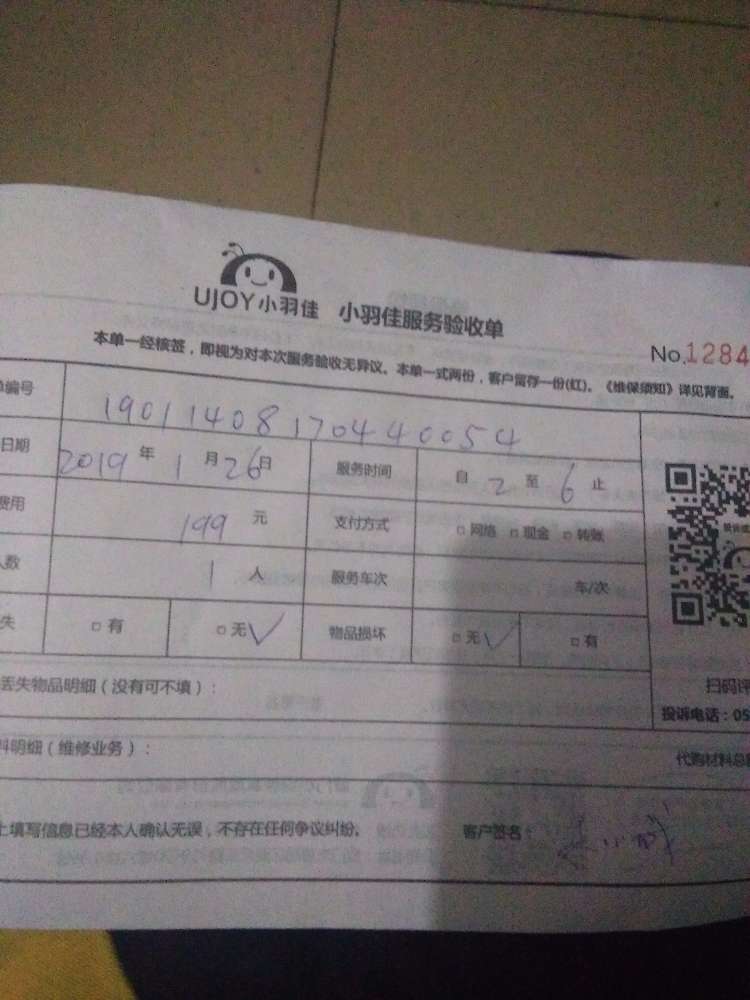 UJOY小羽佳 小羽佳服务验收单
No.1284
本单一经核签，即视为对本次服务验收无异议。本单一式两份，客户留存一份(红)。《维保须知》详见背面。
单编号 190114081704440054
日期 2019 年 1 月 26 日 服务时间 自 2 至 6 止
费用 199 元 支付方式 □网络 □现金 □转账
人数 1 人 服务车次 车/次
失 □有 □无√ 物品损坏 □无√ □有
扫码评
丢失物品明细（没有可不填）：
投诉电话：05
料明细（维修业务）： 代购材料总
上填写信息已经本人确认无误，不存在任何争议纠纷。 客户签名：